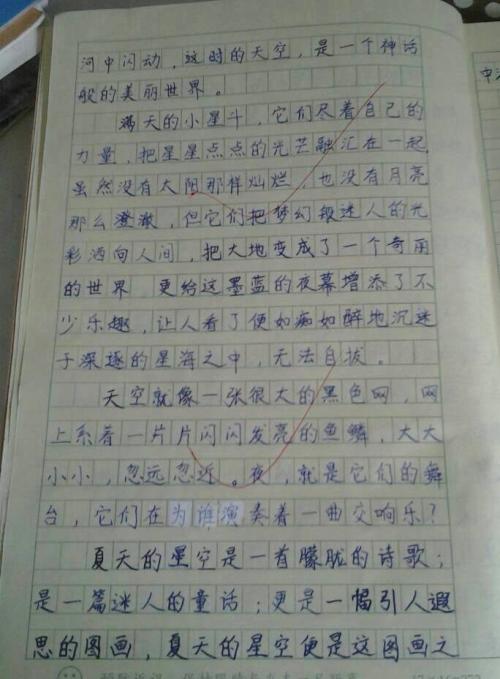 河中闪动，这时的天空，是一个神话
般的美丽世界。
满天的小星斗，它们尽着自己的
力量，把星星点点的光芒融汇在一起，
虽然没有太阳那样灿烂，也没有月亮
那么澄澈，但它们把梦幻般迷人的光
彩洒向人间，把大地变成了一个奇丽
的世界 更给这墨蓝的夜幕增添了不
少乐趣，让人看了便如痴如醉地沉迷
于深邃的星海之中，无法自拔。
天空就像一张很大的黑色网，网
上系着一片片闪闪发亮的鱼鳞，大大
小小，忽远忽近。夜，就是它们的舞
台，它们在为谁演奏着一曲交响乐？
夏天的星空是一首朦胧的诗歌；
是一篇迷人的童话；更是一幅引人遐
思的图画，夏天的星空便是这图画之